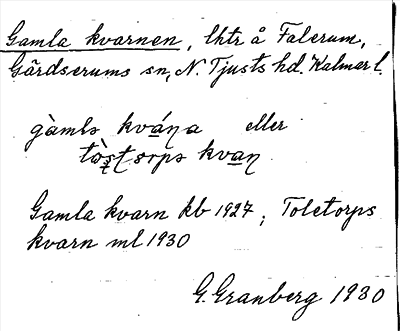 Gamla kvarnen, lhtr å Falerum,
Gärdserums sn, N. Tjusts hd. Kalmar l.
gàmlə kvána eller
kvan
Gamla kvarn kb 1927; Toletorps
kvarn ml 1930
G. Granberg 1930